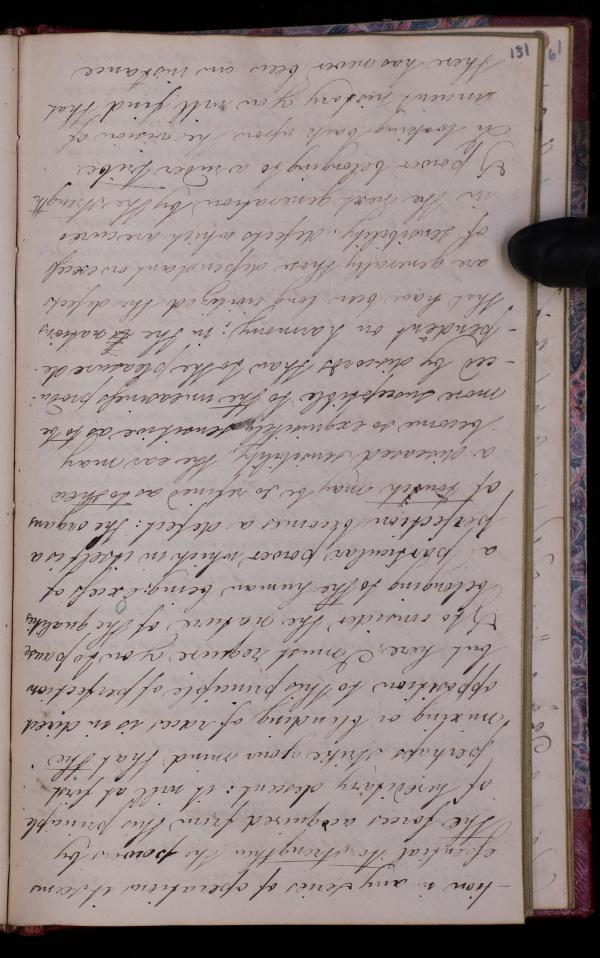 131
61
-tion in any series of operations it seems
essential to strengthen the powers by
the forces acquired from this principle
of hereditary descent: it will at first
perhaps strike your mind that the
mixing or blending of races is in direct
opposition to this principle of perfection
but here, I must require you to pause
& to consider the nature of the qualities
belonging to the human being, excess of
a particular power which in itself is a
perfection becomes a defect: the organs
of touch may be so refined as to shew
a diseased sensibility, the ear may
become so exquisitely sensitive as to be
more susceptible to the uneasiness produ
-ced by discords than to the pleasure de
-pendent on harmony; in the nations
that have been long civilized the defects
are generally those dependant on excess
of sensibility, defects which are cured
in the next generation by the strength
& power belonging to a ruder tribe.
In looking back upon the vision of
ancient history you will find that
there has never been an instance